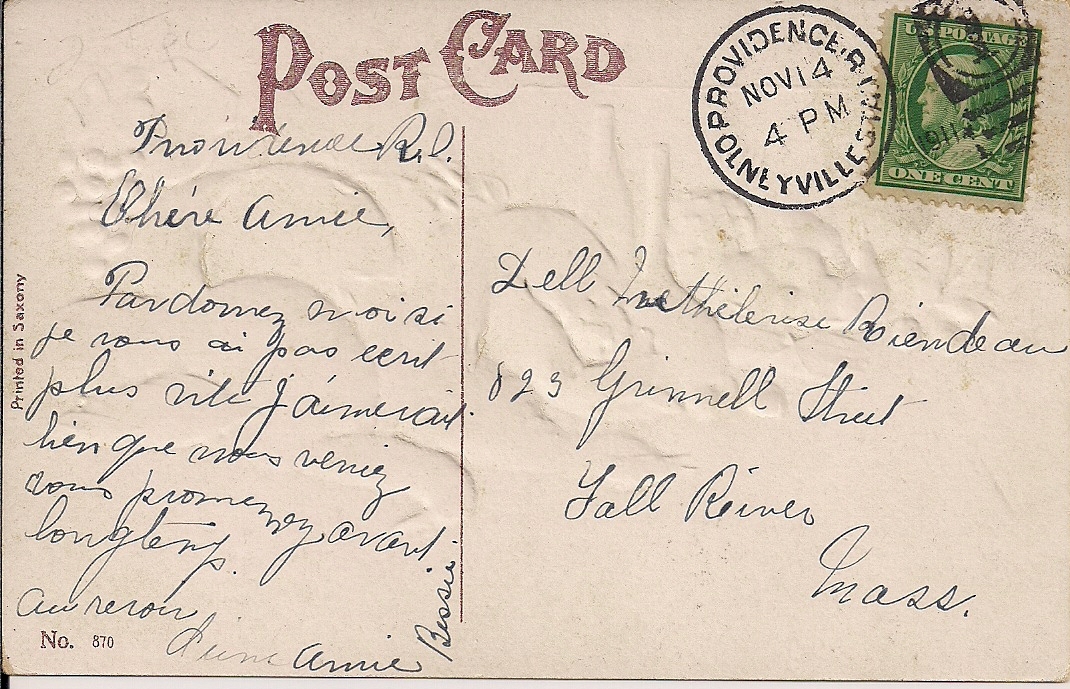 POST CARD
PROVIDENCE, R.I.
NOV 14
4 PM
OLNEYVILLE STA.
1911
U.S. POSTAGE
ONE CENT
Providence R.I.
Chère Amie,
Pardonnez moi si
je vous ai pas ecrit
plus vite j'aimerait
bien que vous veniez
vous promenez avant
longtemp.
au revoir,
d'une Amie
Bessie
Dell Methelerise Riendeau
823 Grinnell Street
Fall River
Mass.
Printed in Saxony
No. 870